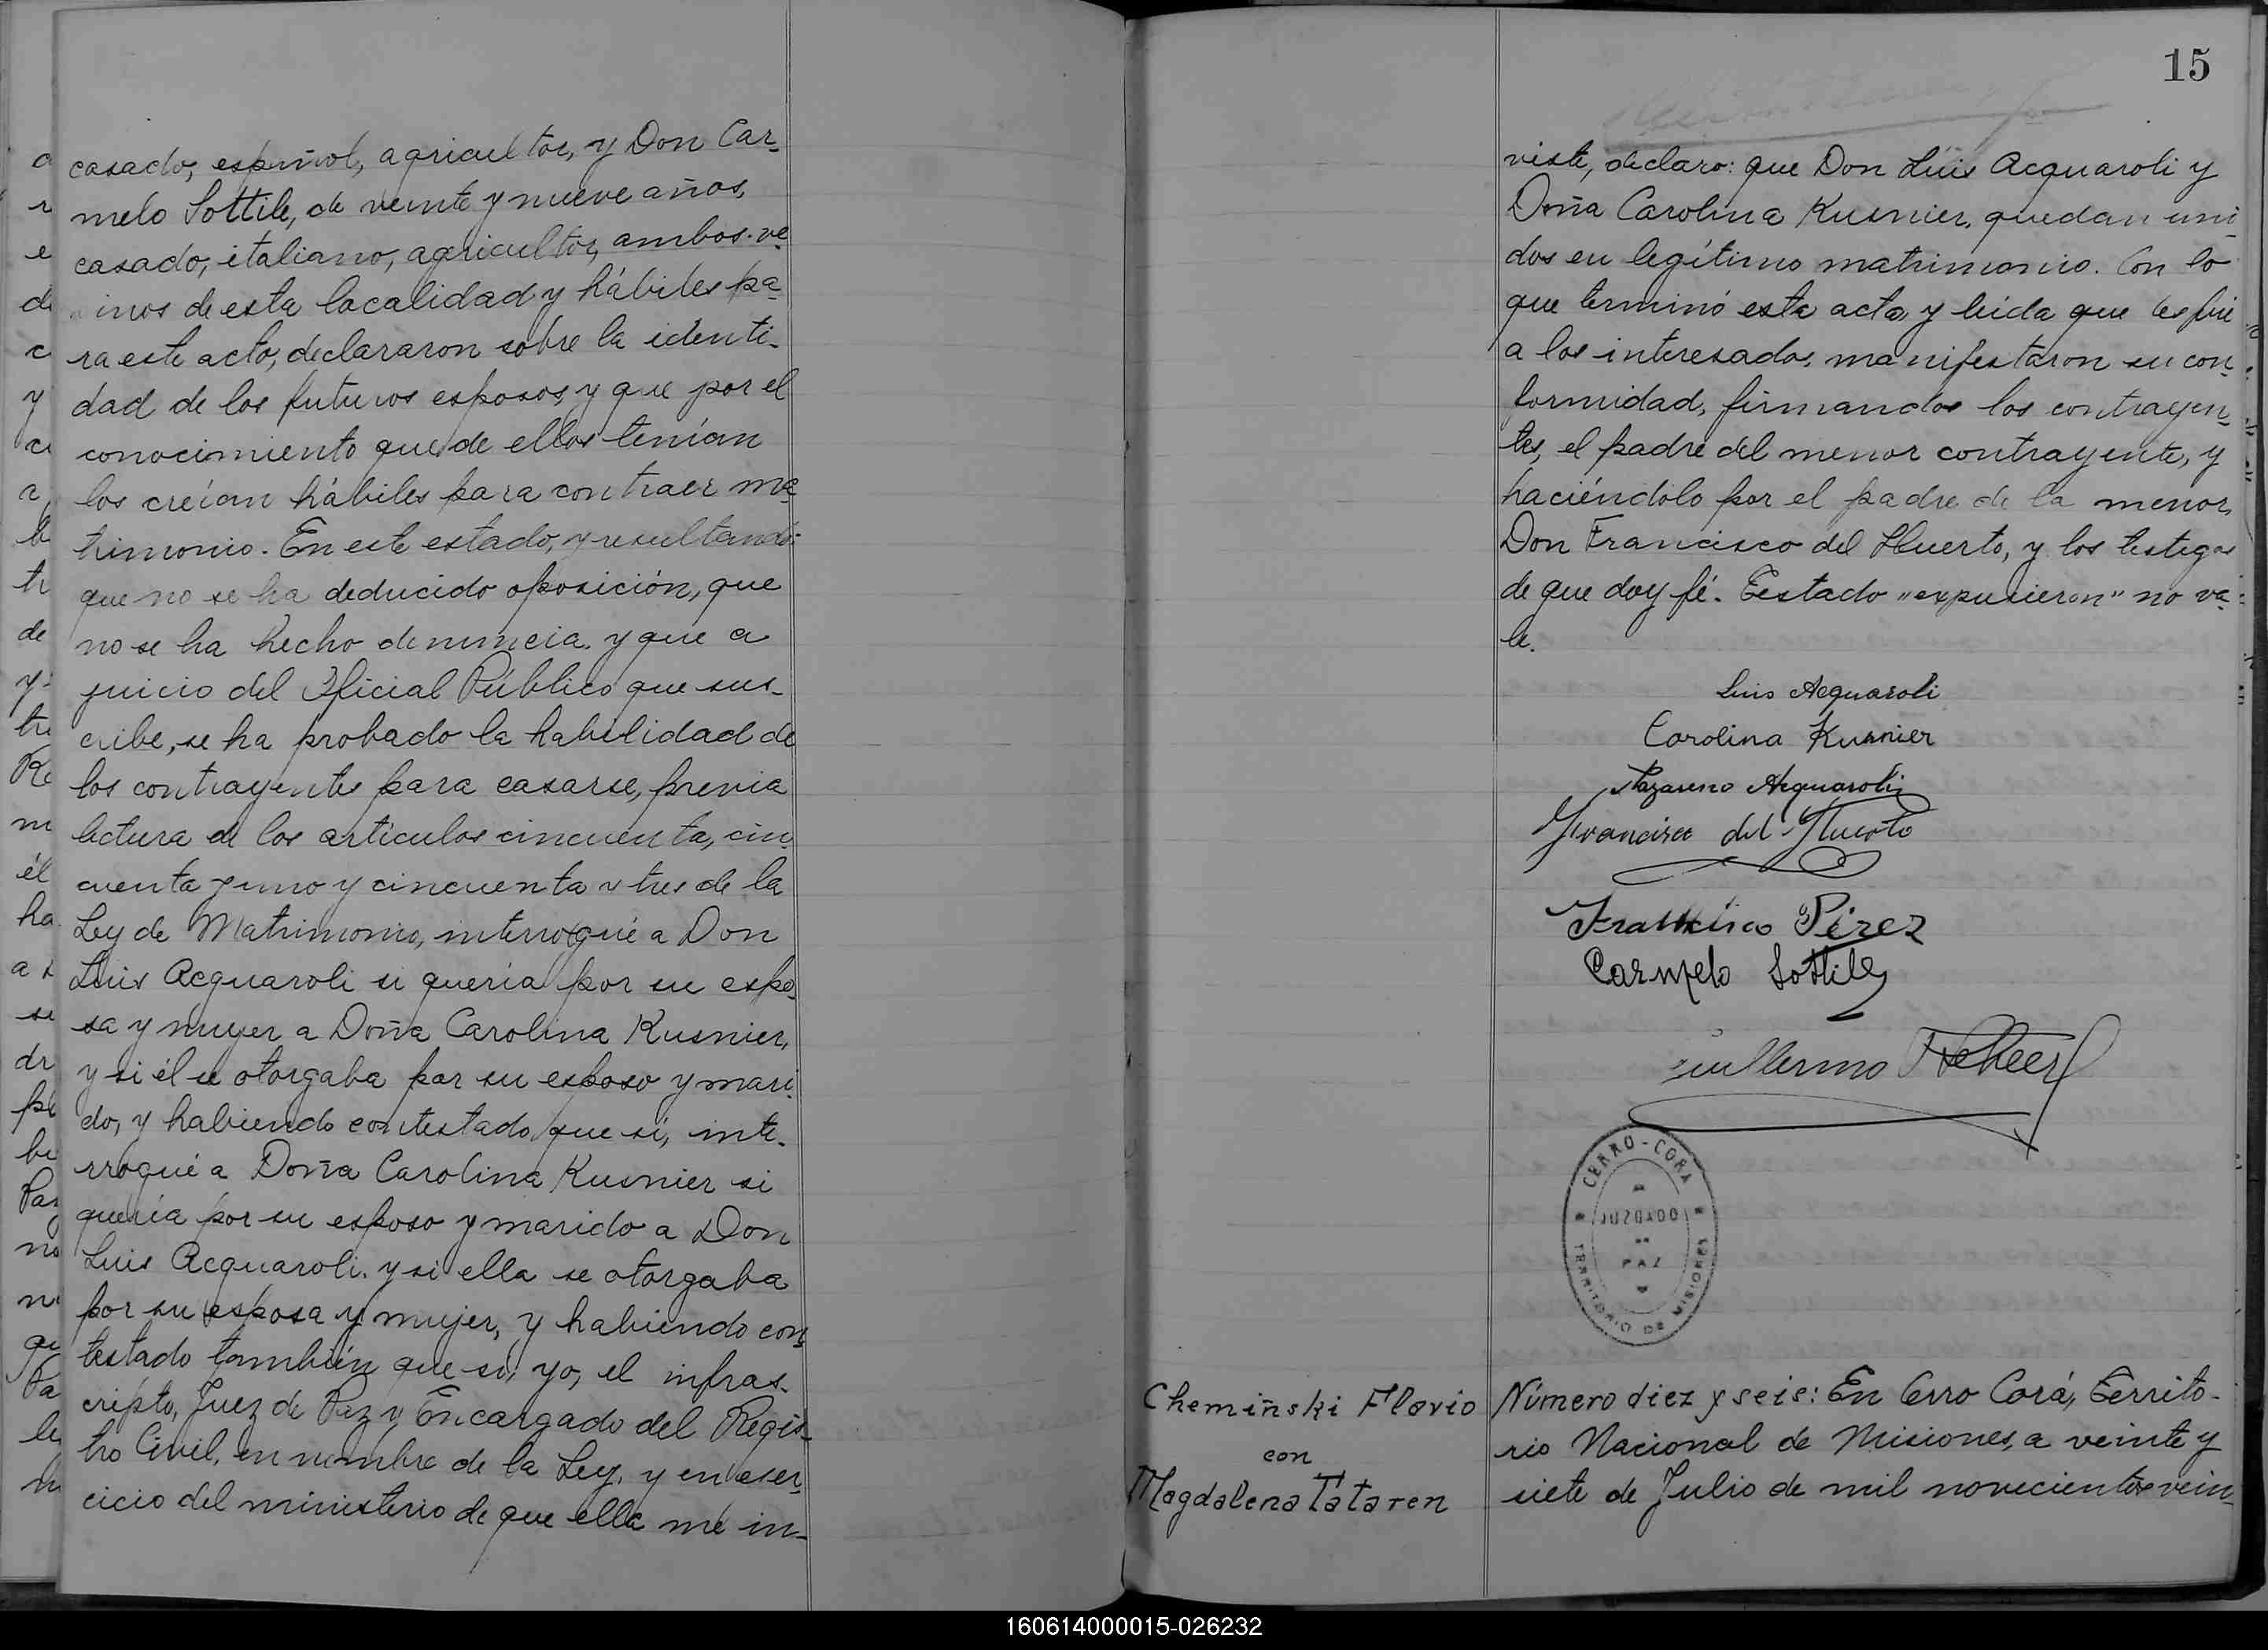 casado, español, agricultor, y Don Car-
melo Sottile, de veinte y nueve años,
casado, italiano, agricultor, ambos ve-
inos de esta localidad y hábiles pa-
ra este acto, declararon sobre la identi-
dad de los futuros esposos, y que por el
conocimiento que de ellos tenían
los creían hábiles para contraer ma-
trimonio. En este estado, y resultando:
que no se ha deducido oposición, que
no se ha hecho denuncia, y que a
juicio del Oficial Público que sus-
cribe, se ha probado la habilidad de
los contrayentes para casarse, previa
lectura de los artículos cincuenta, cin-
cuenta y uno y cincuenta y tres de la
Ley de Matrimonio, interrogué a Don
Luis Acquaroli si quería por su espo-
sa y mujer a Doña Carolina Kusnier,
y si él se otorgaba por su esposo y mari-
do, y habiendo contestado que sí, inte-
rrogué a Doña Carolina Kusnier si
quería por su esposo y marido a Don
Luis Acquaroli, y si ella se otorgaba
por su esposa y mujer, y habiendo con-
testado también que sí, yo, el infras-
cripto, Juez de Paz y Encargado del Regis-
tro Civil, en nombre de la Ley, y en ejer-
cicio del ministerio de que ella me in-
15
viste, declaro: que Don Luis Acquaroli y
Doña Carolina Kusnier, quedan uni-
dos en legítimo matrimonio. Con lo
que terminó esta acta, y leída que les fué
a los interesados, manifestaron su con-
formidad, firmandos los contrayen-
tes, el padre del menor contrayente, y
haciéndolo por el padre de la menor,
Don Francisco del Huerto, y los testigos
de que doy fé. Testado "expusieron" no va-
le.
Luis Acquaroli
Carolina Kusnier
Nazareno Acquaroli
Francisco del Huerto
Francisco Pérez
Carmelo Sottile
Guillermo
CERRO-CORA
JUZGADO
DE
PAZ
TERRITORIO DE MISIONES
Chemiñski Flavio
con
Magdalena Tataren
Número diez y seis: En Cerro Corá, Territo-
rio Nacional de Misiones, a veinte y
siete de Julio de mil novecientos vein-
160614000015-026232